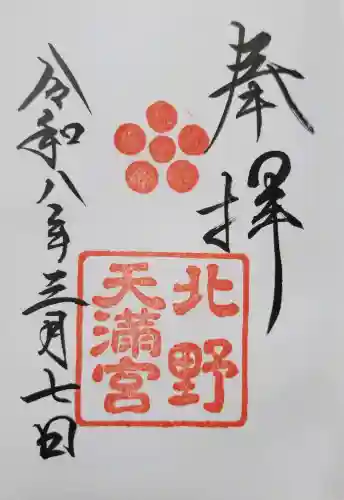 奉拝
北野
天満宮
令和八年三月七日